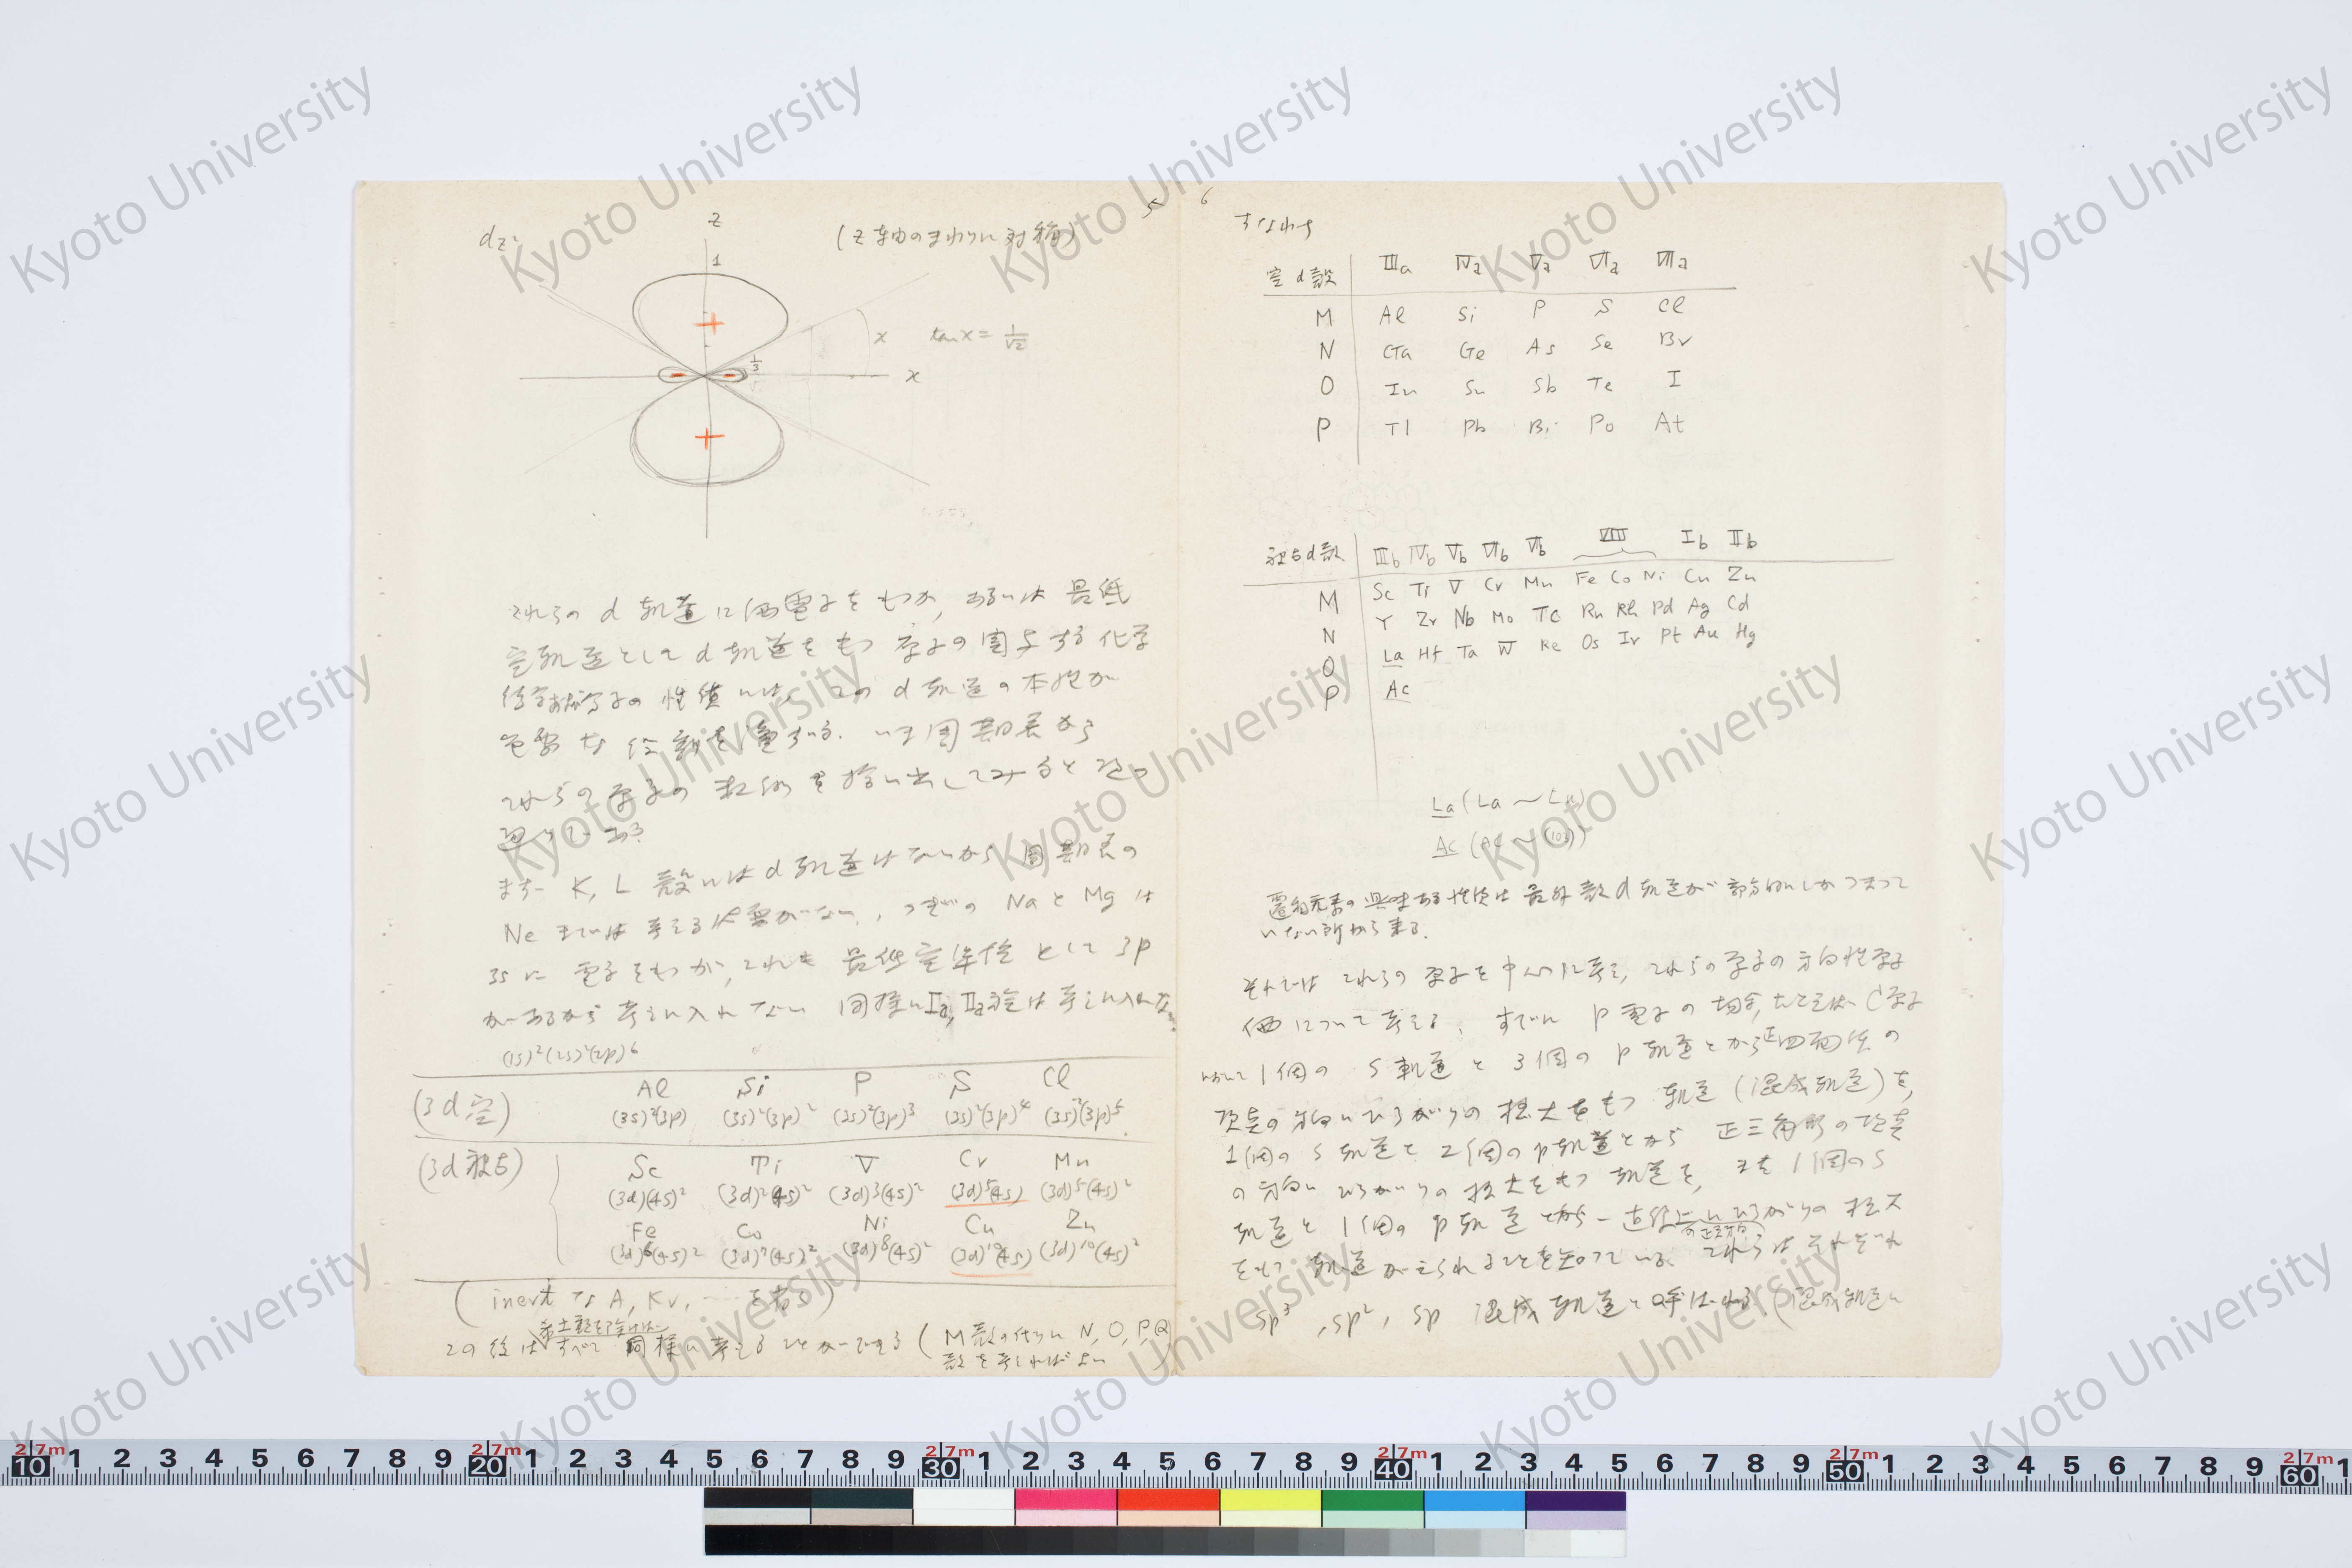 5
dz²
z
(z軸のまわりに対称)
1
x
tan x = 1/√2
1/3
x
これらの d 軌道に価電子をもつか, あるいは 最低
空軌道として d 軌道をもつ 原子の関与する 化学
の性質には, この d 軌道の本性が
重要な役割を演ずる. いま周期表から
これらの原子の 種類を拾い出してみると 次の
通りである.
まず K, L 殻には d 軌道はないから 周期表の
Ne までは考える必要がない, つぎの Na と Mg は
3s に 電子をもつが, これも 最低空準位 として 3p
があるから 考えに入れない 同様に Ia, IIa族は 考えに入れない.
(1s)²(2s)²(2p)⁶
(3d空)
Al Si P S Cl
(3s)²(3p) (3s)²(3p)² (3s)²(3p)³ (3s)²(3p)⁴ (3s)²(3p)⁵
(3d被占)
Sc Ti V Cr Mn
(3d)(4s)² (3d)²(4s)² (3d)³(4s)² (3d)⁵(4s) (3d)⁵(4s)²
Fe Co Ni Cu Zn
(3d)⁶(4s)² (3d)⁷(4s)² (3d)⁸(4s)² (3d)¹⁰(4s) (3d)¹⁰(4s)²
(inert な A, Kr, … を省く)
希土類を除けば
この後は すべて 同様に考えることができる (M殻の代りに N, O, P, Q
殻を考えればよい)
6
すなわち
空d殻 IIIa IVa Va VIa VIIa
M Al Si P S Cl
N Ga Ge As Se Br
O In Sn Sb Te I
P Tl Pb Bi Po At
被占d殻 IIIb IVb Vb VIb VIIb VIII Ib IIb
M Sc Ti V Cr Mn Fe Co Ni Cu Zn
N Y Zr Nb Mo Tc Ru Rh Pd Ag Cd
O La Hf Ta W Re Os Ir Pt Au Hg
P Ac
La (La ~ Lu)
Ac (Ac ~ (103))
遷移元素の興味ある性質は 最外殻 d 軌道が 部分的にしかつまって
いない所から来る.
それでは これらの 原子を中心に考え, これらの原子の方向性原子
価について考える. すでに p 電子の場合, たとえば C 原子
において 1個の s 軌道と 3個の p 軌道とから正四面体の
頂点の方向にひろがりの 極大をもつ 軌道 (混成軌道) を,
1個の s 軌道と 2個の p 軌道とから 正三角形の頂点
の方向に ひろがりの 極大をもつ 軌道を, また 1個の s
軌道と 1個の p 軌道とから 一直線上にひろがりの 極大
の正反対方向
をもつ 軌道がえられることを知っている. これらは それぞれ
sp³, sp², sp 混成軌道と呼ばれる (混成軌道に